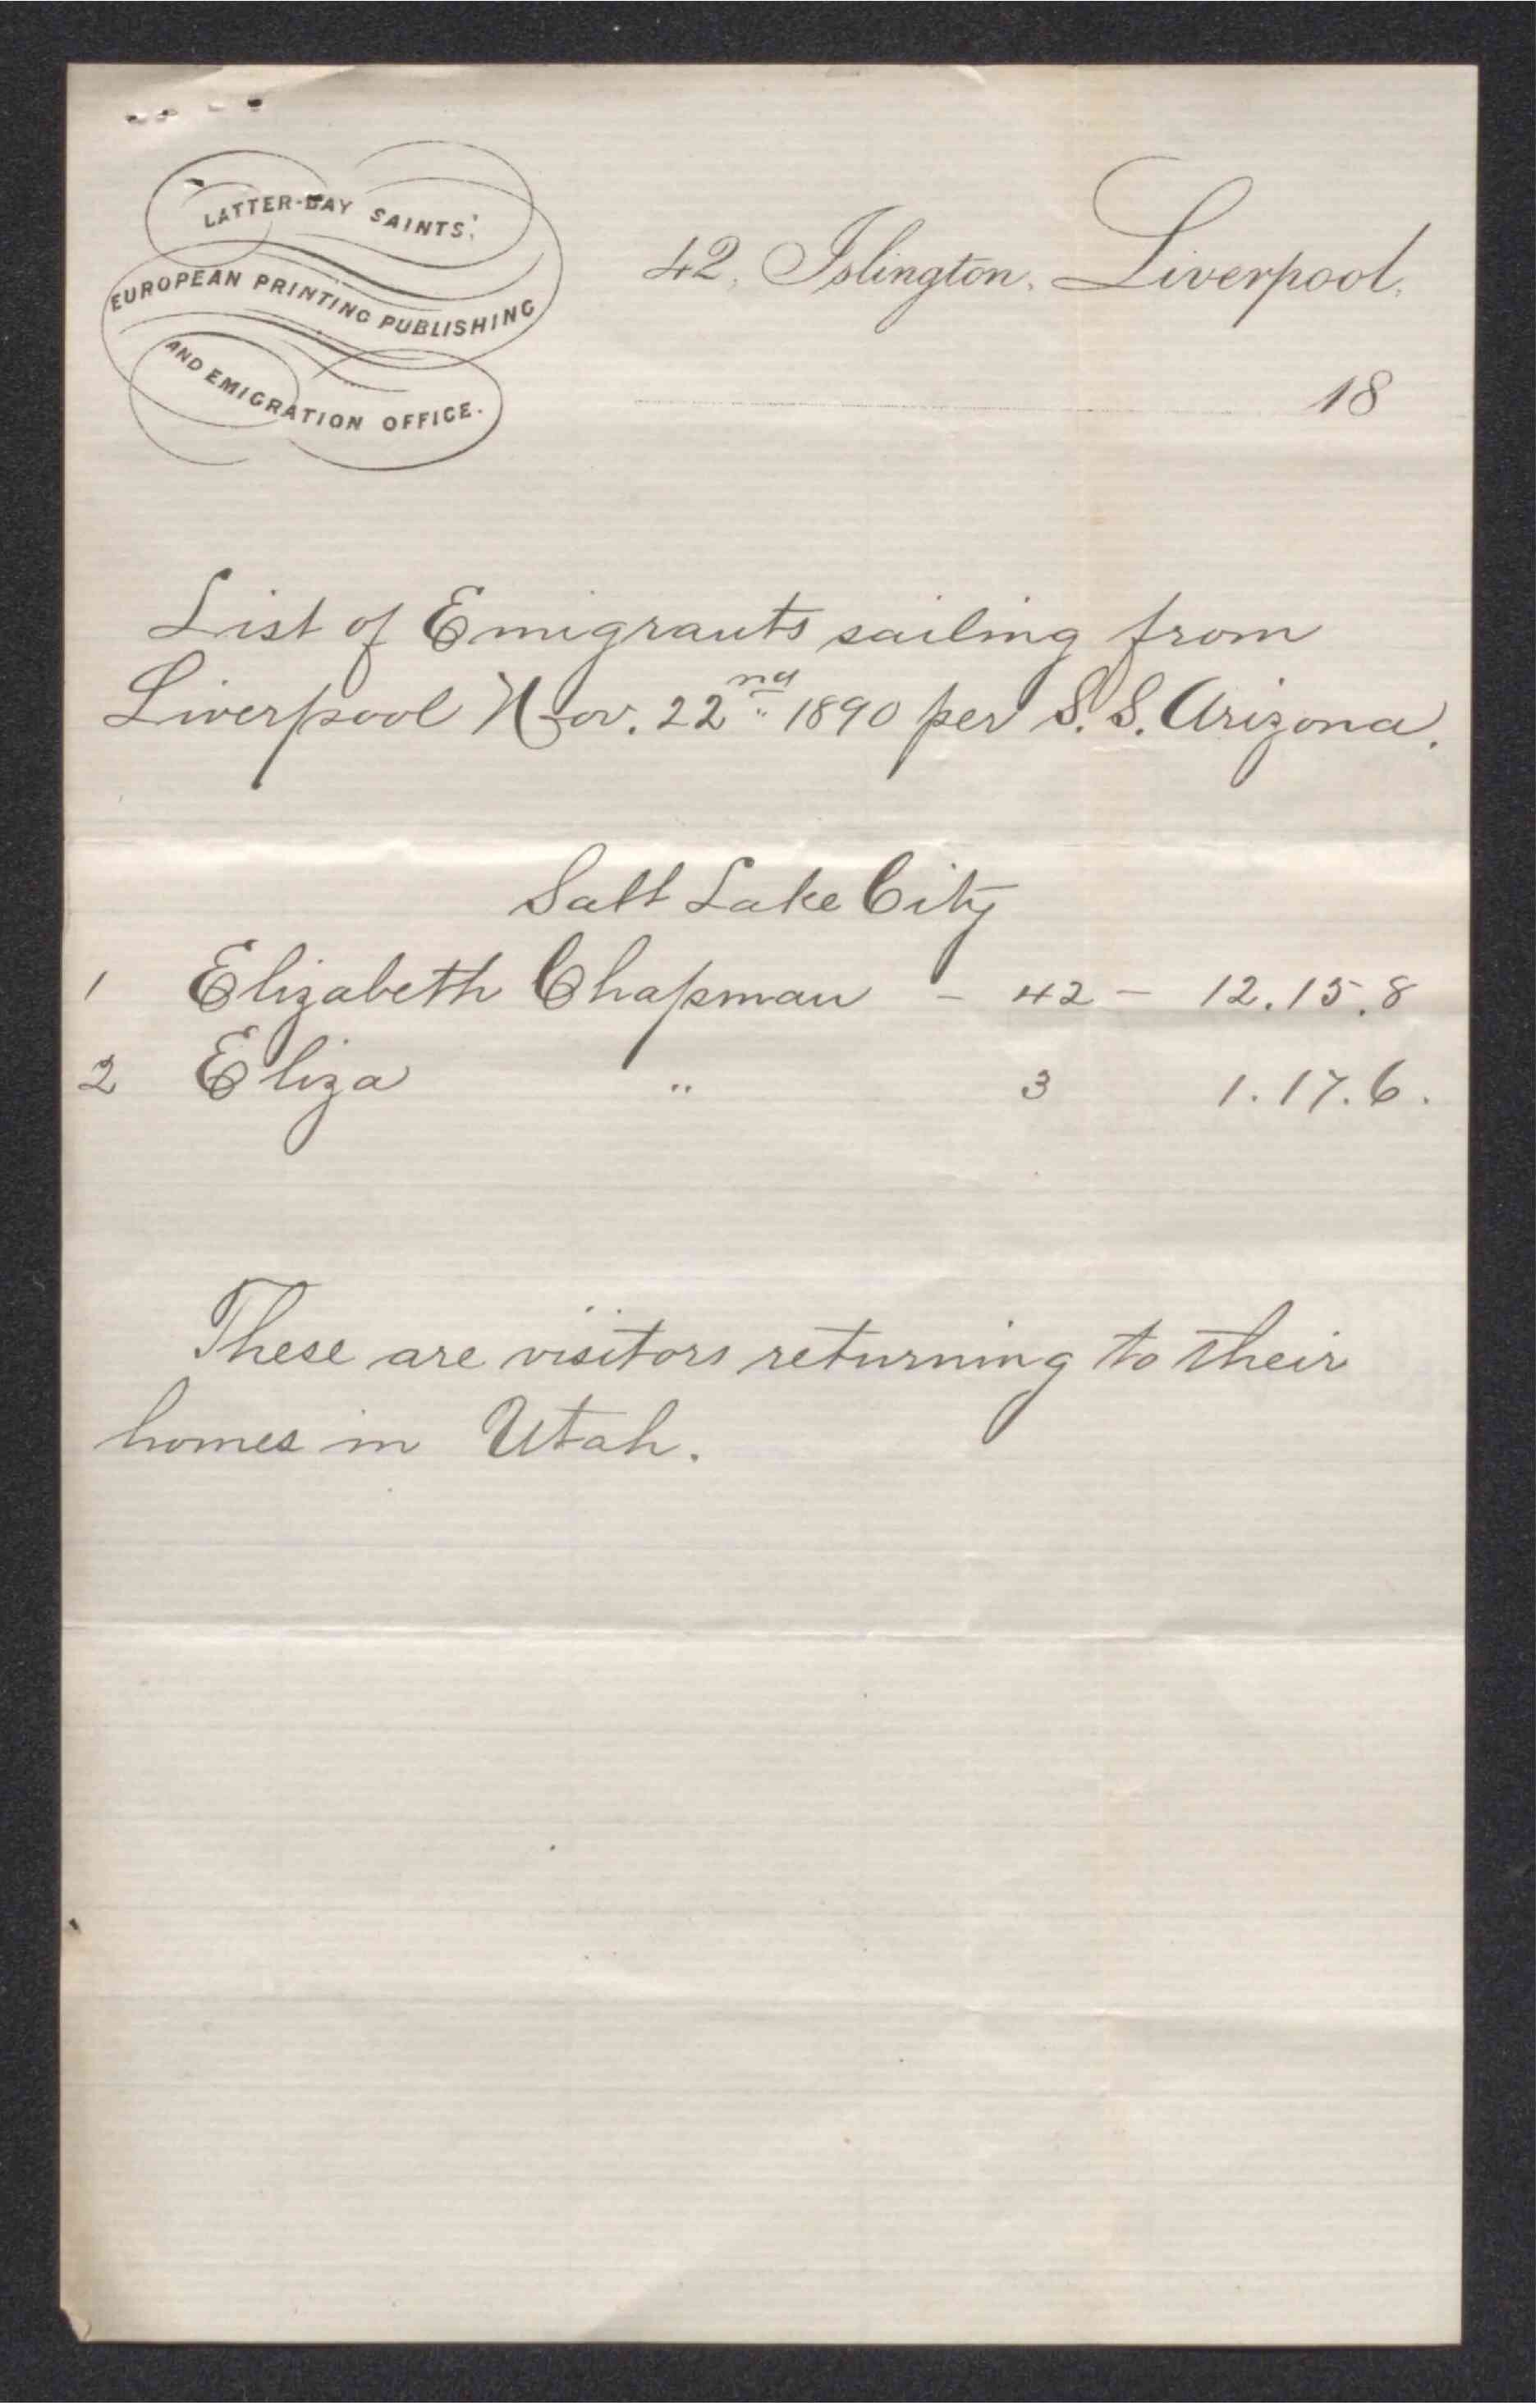 LATTER-DAY SAINTS'
EUROPEAN PRINTING PUBLISHING
AND EMIGRATION OFFICE.
42, Islington, Liverpool,
18
List of Emigrants sailing from
Liverpool Nov. 22nd 1890 per S.S. Arizona.
Salt Lake City
1 Elizabeth Chapman - 42 - 12.15.8
2 Eliza " 3 1.17.6.
These are visitors returning to their
homes in Utah.